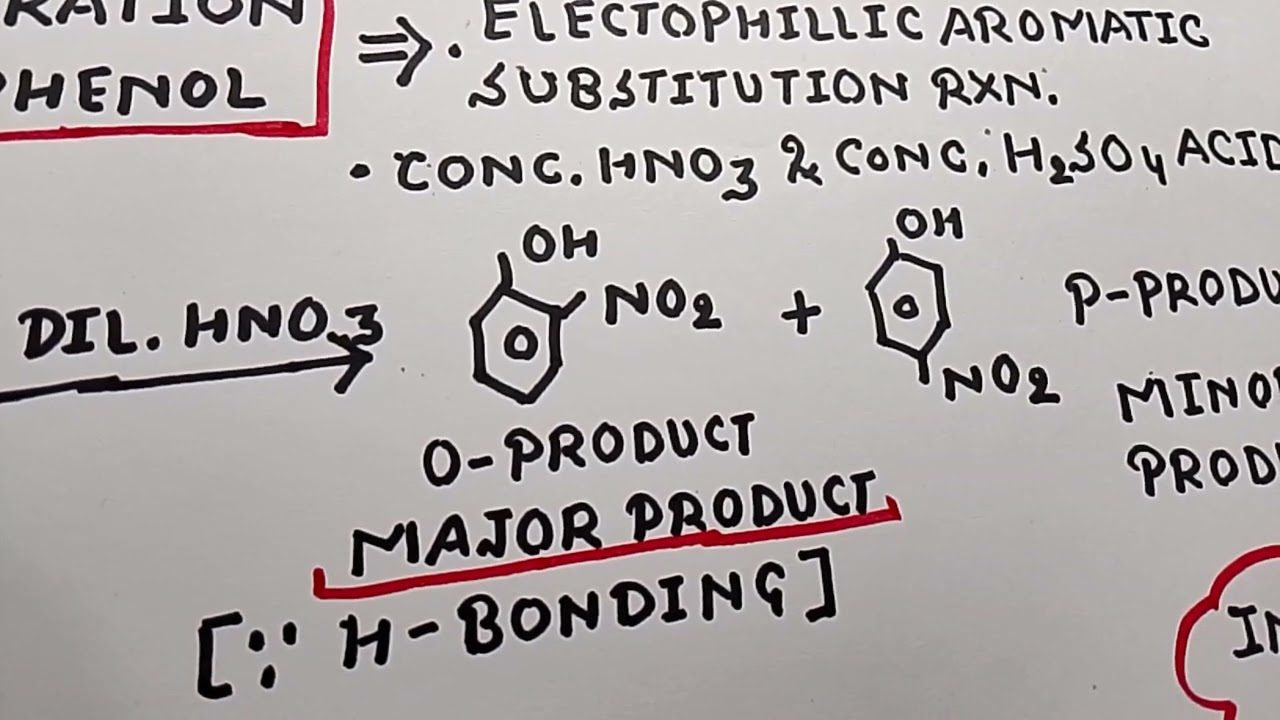 RATION
PHENOL
⇒ • ELECTOPHILLIC AROMATIC
SUBSTITUTION RXN.
• CONC. HNO3 & CONC. H2SO4 ACID
DIL. HNO3
OH
NO2
+
OH
NO2
P-PRODU
MINO
PROD
O-PRODUCT
MAJOR PRODUCT
[∵ H-BONDING]
IN